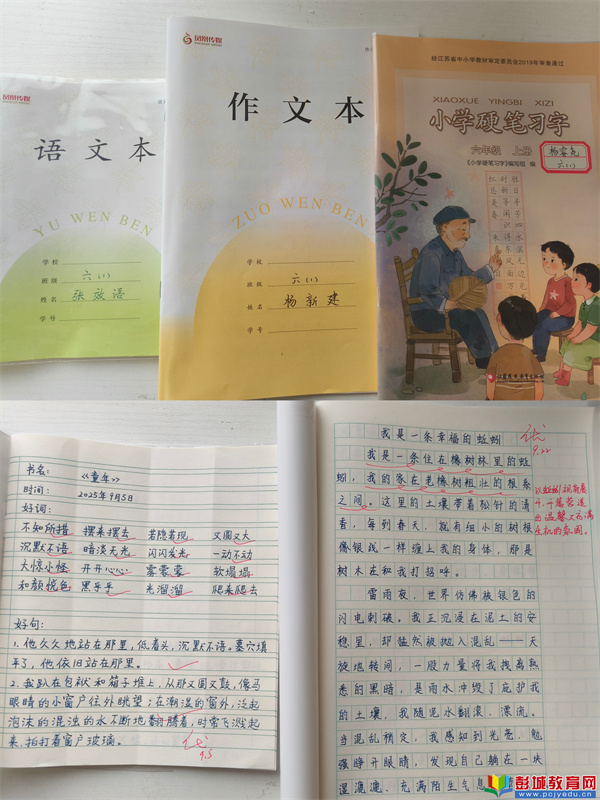 凤凰传媒
语文本
YU WEN BEN
学校
班级 六(1)
姓名 张效语
学号
凤凰传媒
作文本
ZUO WEN BEN
学校
班级 六(1)
姓名 杨新建
学号
经江苏省中小学教材审定委员会2019年审查通过
XIAOXUE YINGBI XIZI
小学硬笔习字
六年级 上册
《小学硬笔习字》编写组 编
六(1)
书名: 《童年》
时间: 2025年9月5日
好词:
不知所措 摆来摆去 若隐若现 又圆又大
沉默不语 暗淡无光 闪闪发光 一动不动
大惊小怪 开开心心 雾蒙蒙 软塌塌
和颜悦色 黑乎乎 光溜溜 爬来爬去
好句:
1.他久久地站在那里,低着头,沉默不语。墓穴填
平了,他依旧站在那里。
2.我趴在包袱和箱子堆上,从那又圆又鼓,像马
眼睛的小窗户往外眺望;在潮湿的窗外,泛起
泡沫的混浊的水不断地翻腾着,时常飞溅起
来,拍打着窗户玻璃。
优
9.5
我是一条幸福的蚯蚓
优
9.22
我是一条住在橡树林里的蚯
蚓,我的家在老橡树粗壮的根系
之间。这里的土壤带着松针的清
香,每到春天,就有细小的树根
像银线一样缠上我的身体,那是
树木在和我打招呼。
雷雨夜,世界仿佛被银色的
闪电刺破。我正沉浸在泥土的安
稳里,却猛然被抛入混乱——天
旋地转间,一股力量将我拽离熟
悉的黑暗,是雨水冲毁了庇护我
的土壤,我随泥水翻滚、漂流。
当混乱稍定,我感知到光亮,勉
强睁开眼睛,发现自己躺在一块
湿漉漉、充满陌生气息
彭城教育网
www.pcjyedu.cn